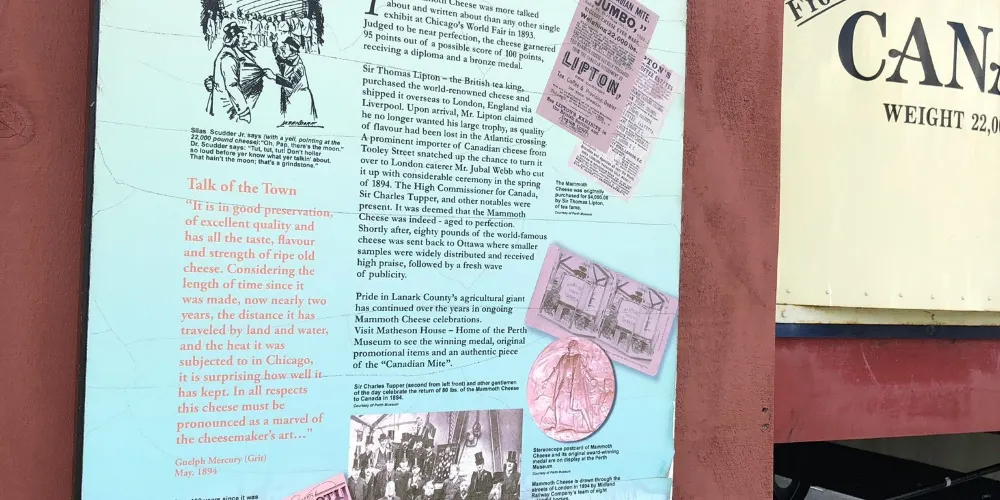 Mammoth Cheese was more talked
about and written about than any other single
exhibit at Chicago's World Fair in 1893.
Judged to be near perfection, the cheese garnered
95 points out of a possible score of 100 points,
receiving a diploma and a bronze medal.
Sir Thomas Lipton – the British tea king,
purchased the world-renowned cheese and
shipped it overseas to London, England via
Liverpool. Upon arrival, Mr. Lipton claimed
he no longer wanted his large trophy, as quality
of flavour had been lost in the Atlantic crossing.
A prominent importer of Canadian cheese from
Tooley Street snatched up the chance to turn it
over to London caterer Mr. Jubal Webb who cut
it up with considerable ceremony in the spring
of 1894. The High Commissioner for Canada,
Sir Charles Tupper, and other notables were
present. It was deemed that the Mammoth
Cheese was indeed - aged to perfection.
Shortly after, eighty pounds of the world-famous
cheese was sent back to Ottawa where smaller
samples were widely distributed and received
high praise, followed by a fresh wave
of publicity.
Pride in Lanark County's agricultural giant
has continued over the years in ongoing
Mammoth Cheese celebrations.
Visit Matheson House – Home of the Perth
Museum to see the winning medal, original
promotional items and an authentic piece
of the "Canadian Mite".
Silas Scudder Jr. says (with a yell, pointing at the
22,000 pound cheese): "Oh, Pap, there's the moon."
Dr. Scudder says: "Tut, tut, tut! Don't holler
so loud before yer know what yer talkin' about.
That hain't the moon; that's a grindstone."
Talk of the Town
"It is in good preservation,
of excellent quality and
has all the taste, flavour
and strength of ripe old
cheese. Considering the
length of time since it
was made, now nearly two
years, the distance it has
traveled by land and water,
and the heat it was
subjected to in Chicago,
it is surprising how well it
has kept. In all respects
this cheese must be
pronounced as a marvel of
the cheesemaker's art…"
Guelph Mercury (Grit)
May. 1894
years since it was
Sir Charles Tupper (second from left front) and other gentlemen
of the day celebrate the return of 80 lbs. of the Mammoth Cheese
to Canada in 1894.
Courtesy of Perth Museum
MITE,
JUMBO,
LIPTON,
The Mammoth
Cheese was originally
purchased for $4,000.00
by Sir Thomas Lipton,
of tea fame.
Courtesy of Perth Museum
Stereoscope postcard of Mammoth
Cheese and its original award-winning
medal are on display at the Perth
Museum.
Courtesy of Perth Museum
Mammoth Cheese is drawn through the
streets of London in 1894 by Midland
Railway Company's team of eight
horses.
CANA
WEIGHT 22,0